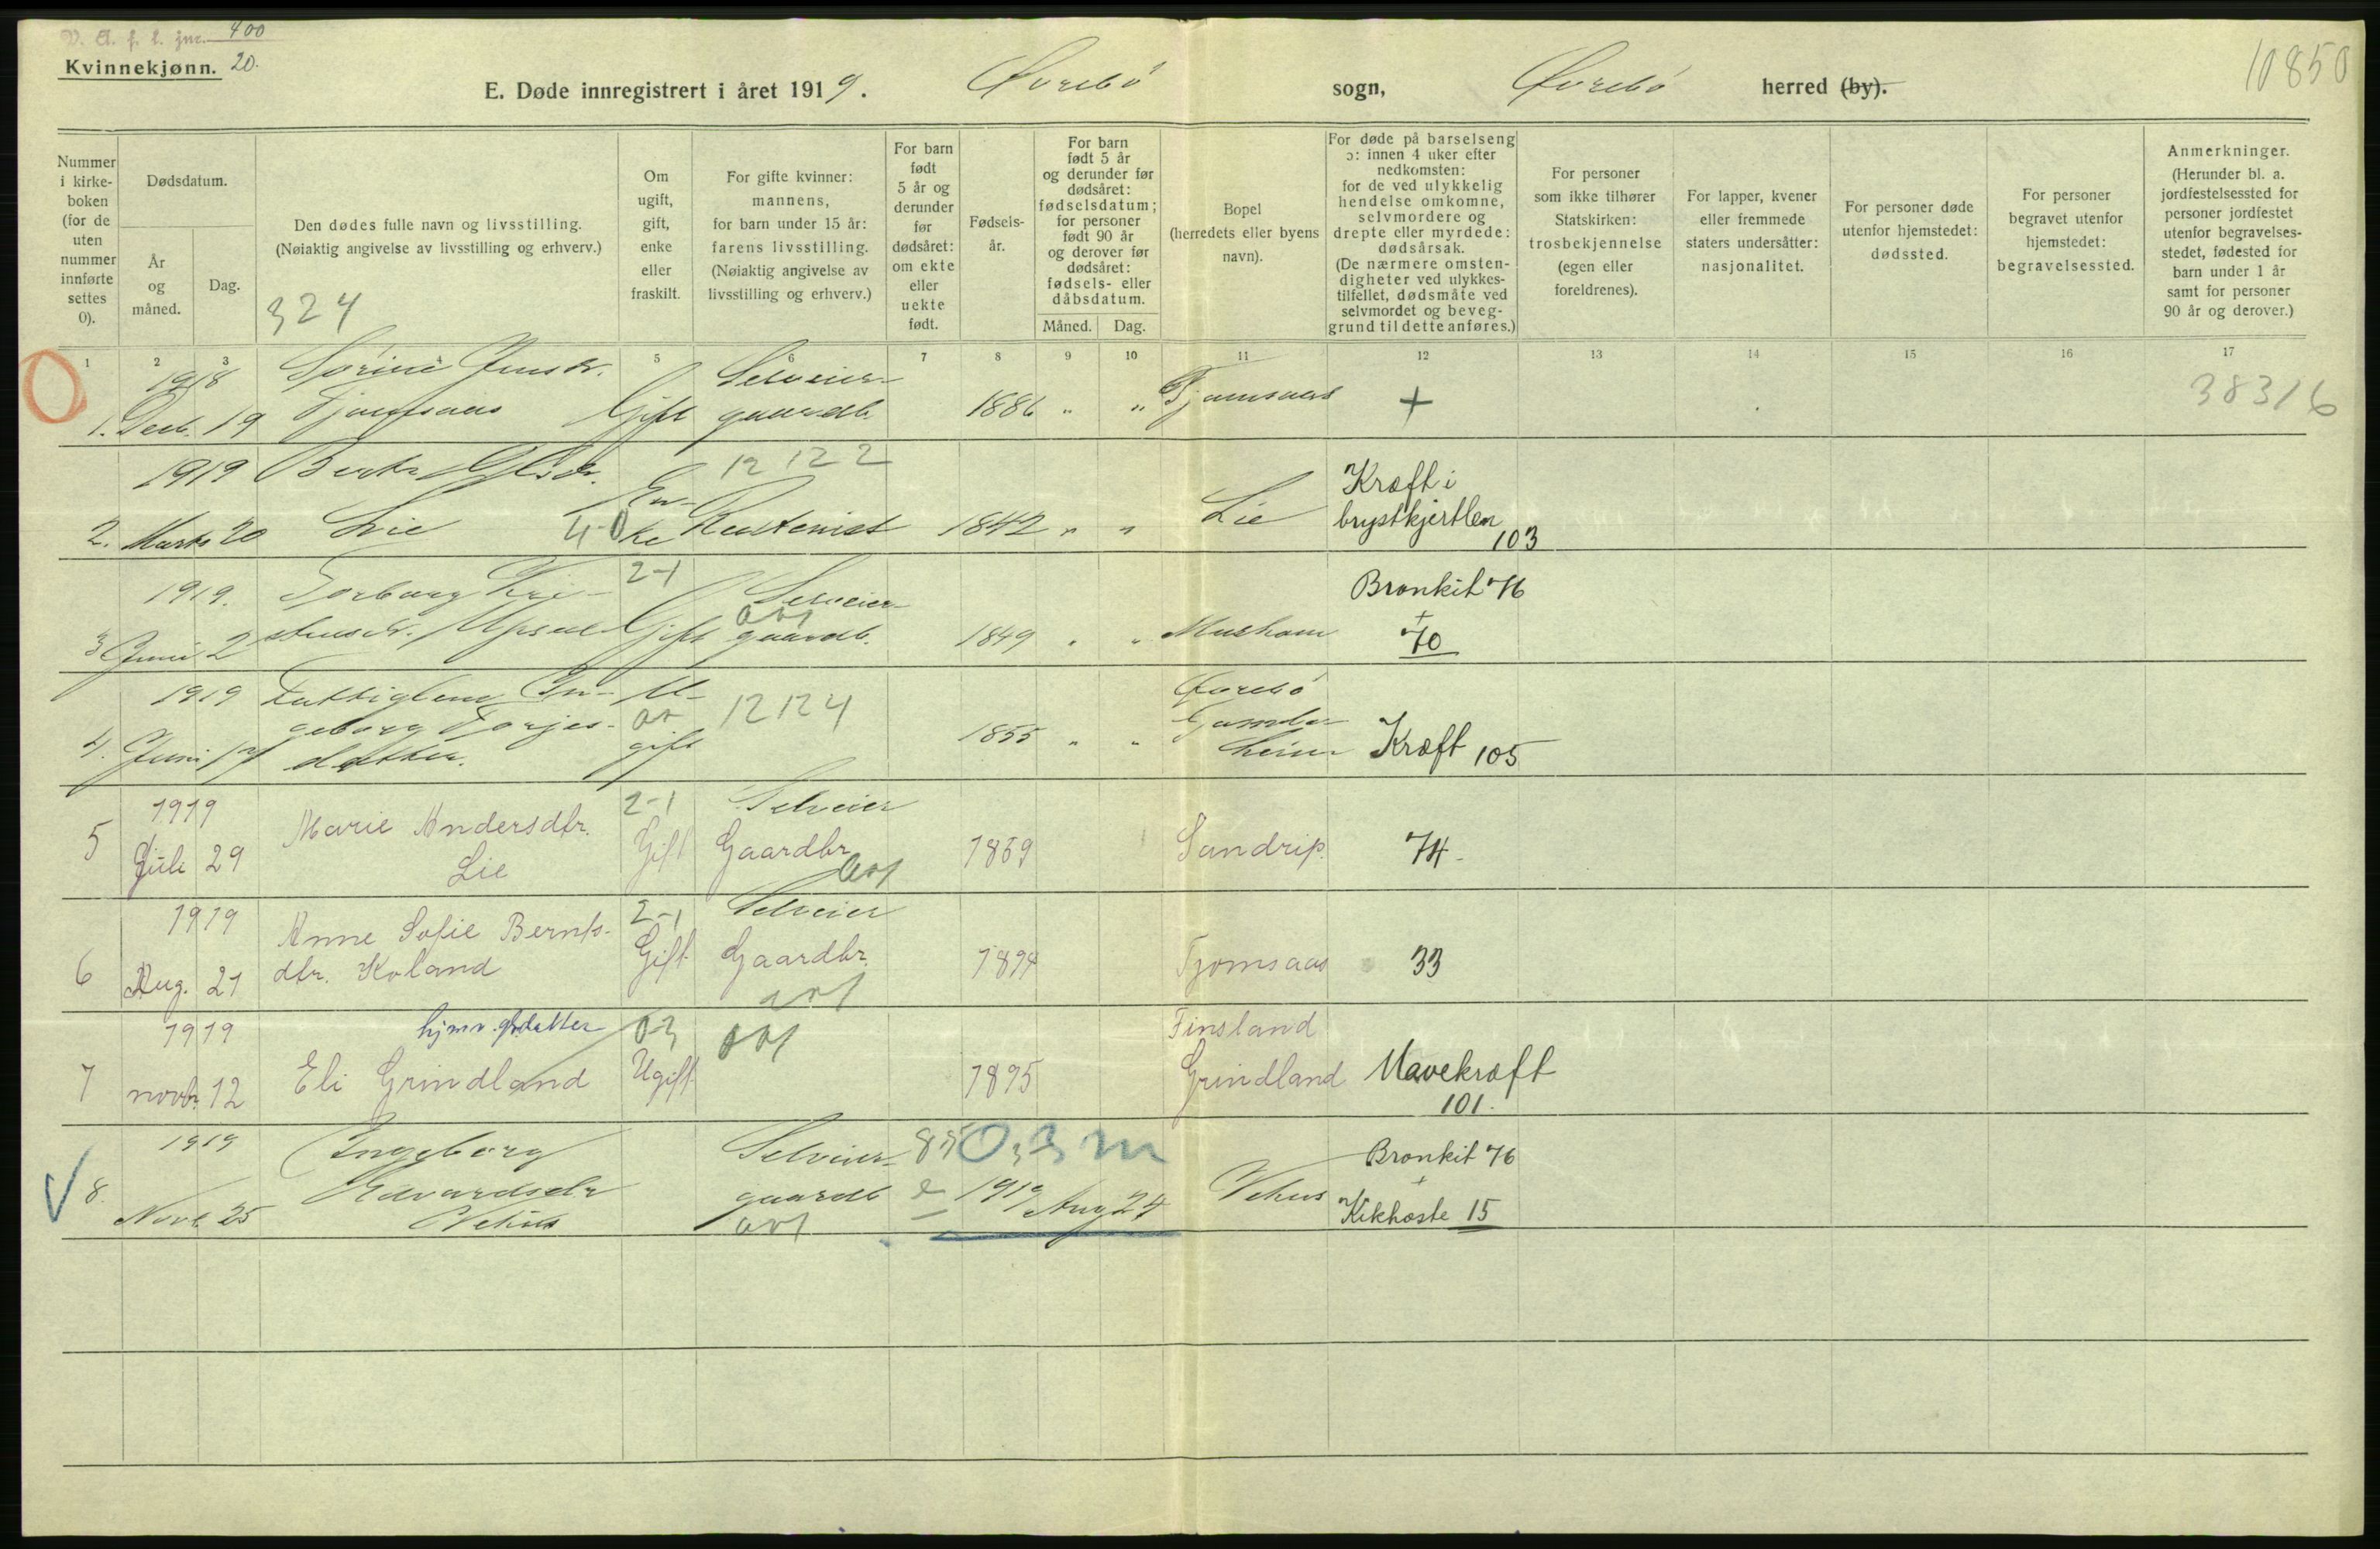 V. A. f. l. jnr. 400
Kvinnekjønn. 20.
10850
E. Døde innregistrert i året 1919. Øvrebö sogn, Øvrebö herred (by).
Nummer i kirke-boken (for de uten nummer innførte settes 0).
Dødsdatum.
År og måned.
Dag.
Den dødes fulle navn og livsstilling.
(Nøiaktig angivelse av livsstilling og erhverv.)
324
Om ugift, gift, enke eller fraskilt.
For gifte kvinner: mannens, for barn under 15 år: farens livsstilling. (Nøiaktig angivelse av livsstilling og erhverv.)
For barn født 5 år og derunder før dødsåret: om ekte eller uekte født.
Fødsels-år.
For barn født 5 år og derunder før dødsåret: fødselsdatum; for personer født 90 år og derover før dødsåret: fødsels- eller dåbsdatum.
Måned. Dag.
Bopel (herredets eller byens navn).
For døde på barselseng ɔ: innen 4 uker efter nedkomsten: for de ved ulykkelig hendelse omkomne, selvmordere og drepte eller myrdede: dødsårsak. (De nærmere omsten-digheter ved ulykkes-tilfellet, dødsmåte ved selvmordet og beveg-grund til dette anføres.)
For personer som ikke tilhører Statskirken: trosbekjennelse (egen eller foreldrenes).
For lapper, kvener eller fremmede staters undersåtter: nasjonalitet.
For personer døde utenfor hjemstedet: dødssted.
For personer begravet utenfor hjemstedet: begravelsessted.
Anmerkninger. (Herunder bl. a. jordfestelsessted for personer jordfestet utenfor begravelses-stedet, fødested for barn under 1 år samt for personer 90 år og derover.)
1 2 3 4 5 6 7 8 9 10 11 12 13 14 15 16 17
1918 Sørine Jensdr. Selveier-
1. Decb. 19 Tjomsaas Gift gaardb. 1886 " " Tjomsaas + 38316
1919 12122 Kræft i
2. Marts 20 Lie 40 En-ke 1842 " " Lie brystkjertlen 103
1919. Torborg Kri- 2-1 Selveier- Bronkit 76
+
3 Juni 2 stensdr. Gift gaardb. 1849 " " 70
1919 Fattiglem In- U- 12124 Øvrebö
geborg Torjes- gamle-
4. Juni datter. gift 1855 " " heim Kræft 105
1919 Marie Andersdtr. 2-1 Selveier
5 Juli 29 Lie Gift Gaardbr. 1869 Sandrip. 74
1919 Anne Sofie Bernts- 2-1 Selveier
6 Aug. 21 dtr. Koland Gift Gaardbr. 1894 Tjomsaas 33
1919 hjmv. gbr.datter Finsland
7 novbr. 12 Eli Grindland Ugift 1895 Grindland Mavekræft
101.
1919 Ingeborg Selveier- 850,3 m Bronkit 76
+
8. Novb. 25 Edvardsdr. gaardb e 1919 Aug 24 Vehus Kikhoste 15
Vehus